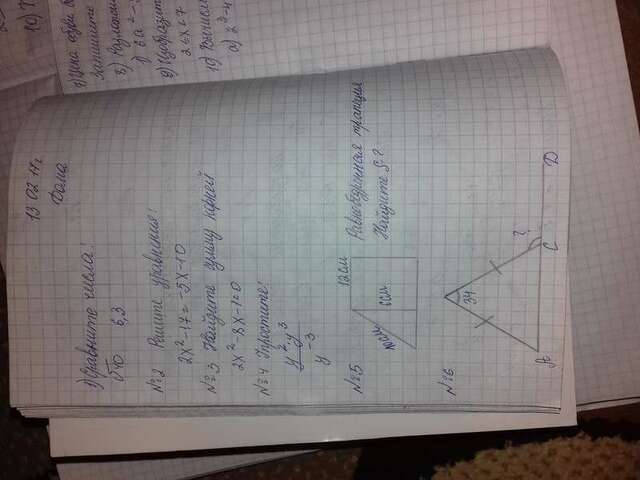 13.02 17г
Дома
1) Сравните числа:
√40 6,3
№2 Решите уравнения:
2x²-17=-5x-10
№3 Найдите сумму корней
2x²-8x-1=0
№4 Упростите:
y²·y³
y⁻³
№5 12см Равнобедренная трапеция
10см 6см Найдите S-?
№6
34
?
A C D
10)
7) Цена обуви
Запишите
8) Разложи
1) 6a²-
9) Изобразит
2≤x<7
10) Вычисл
а) 2³-4